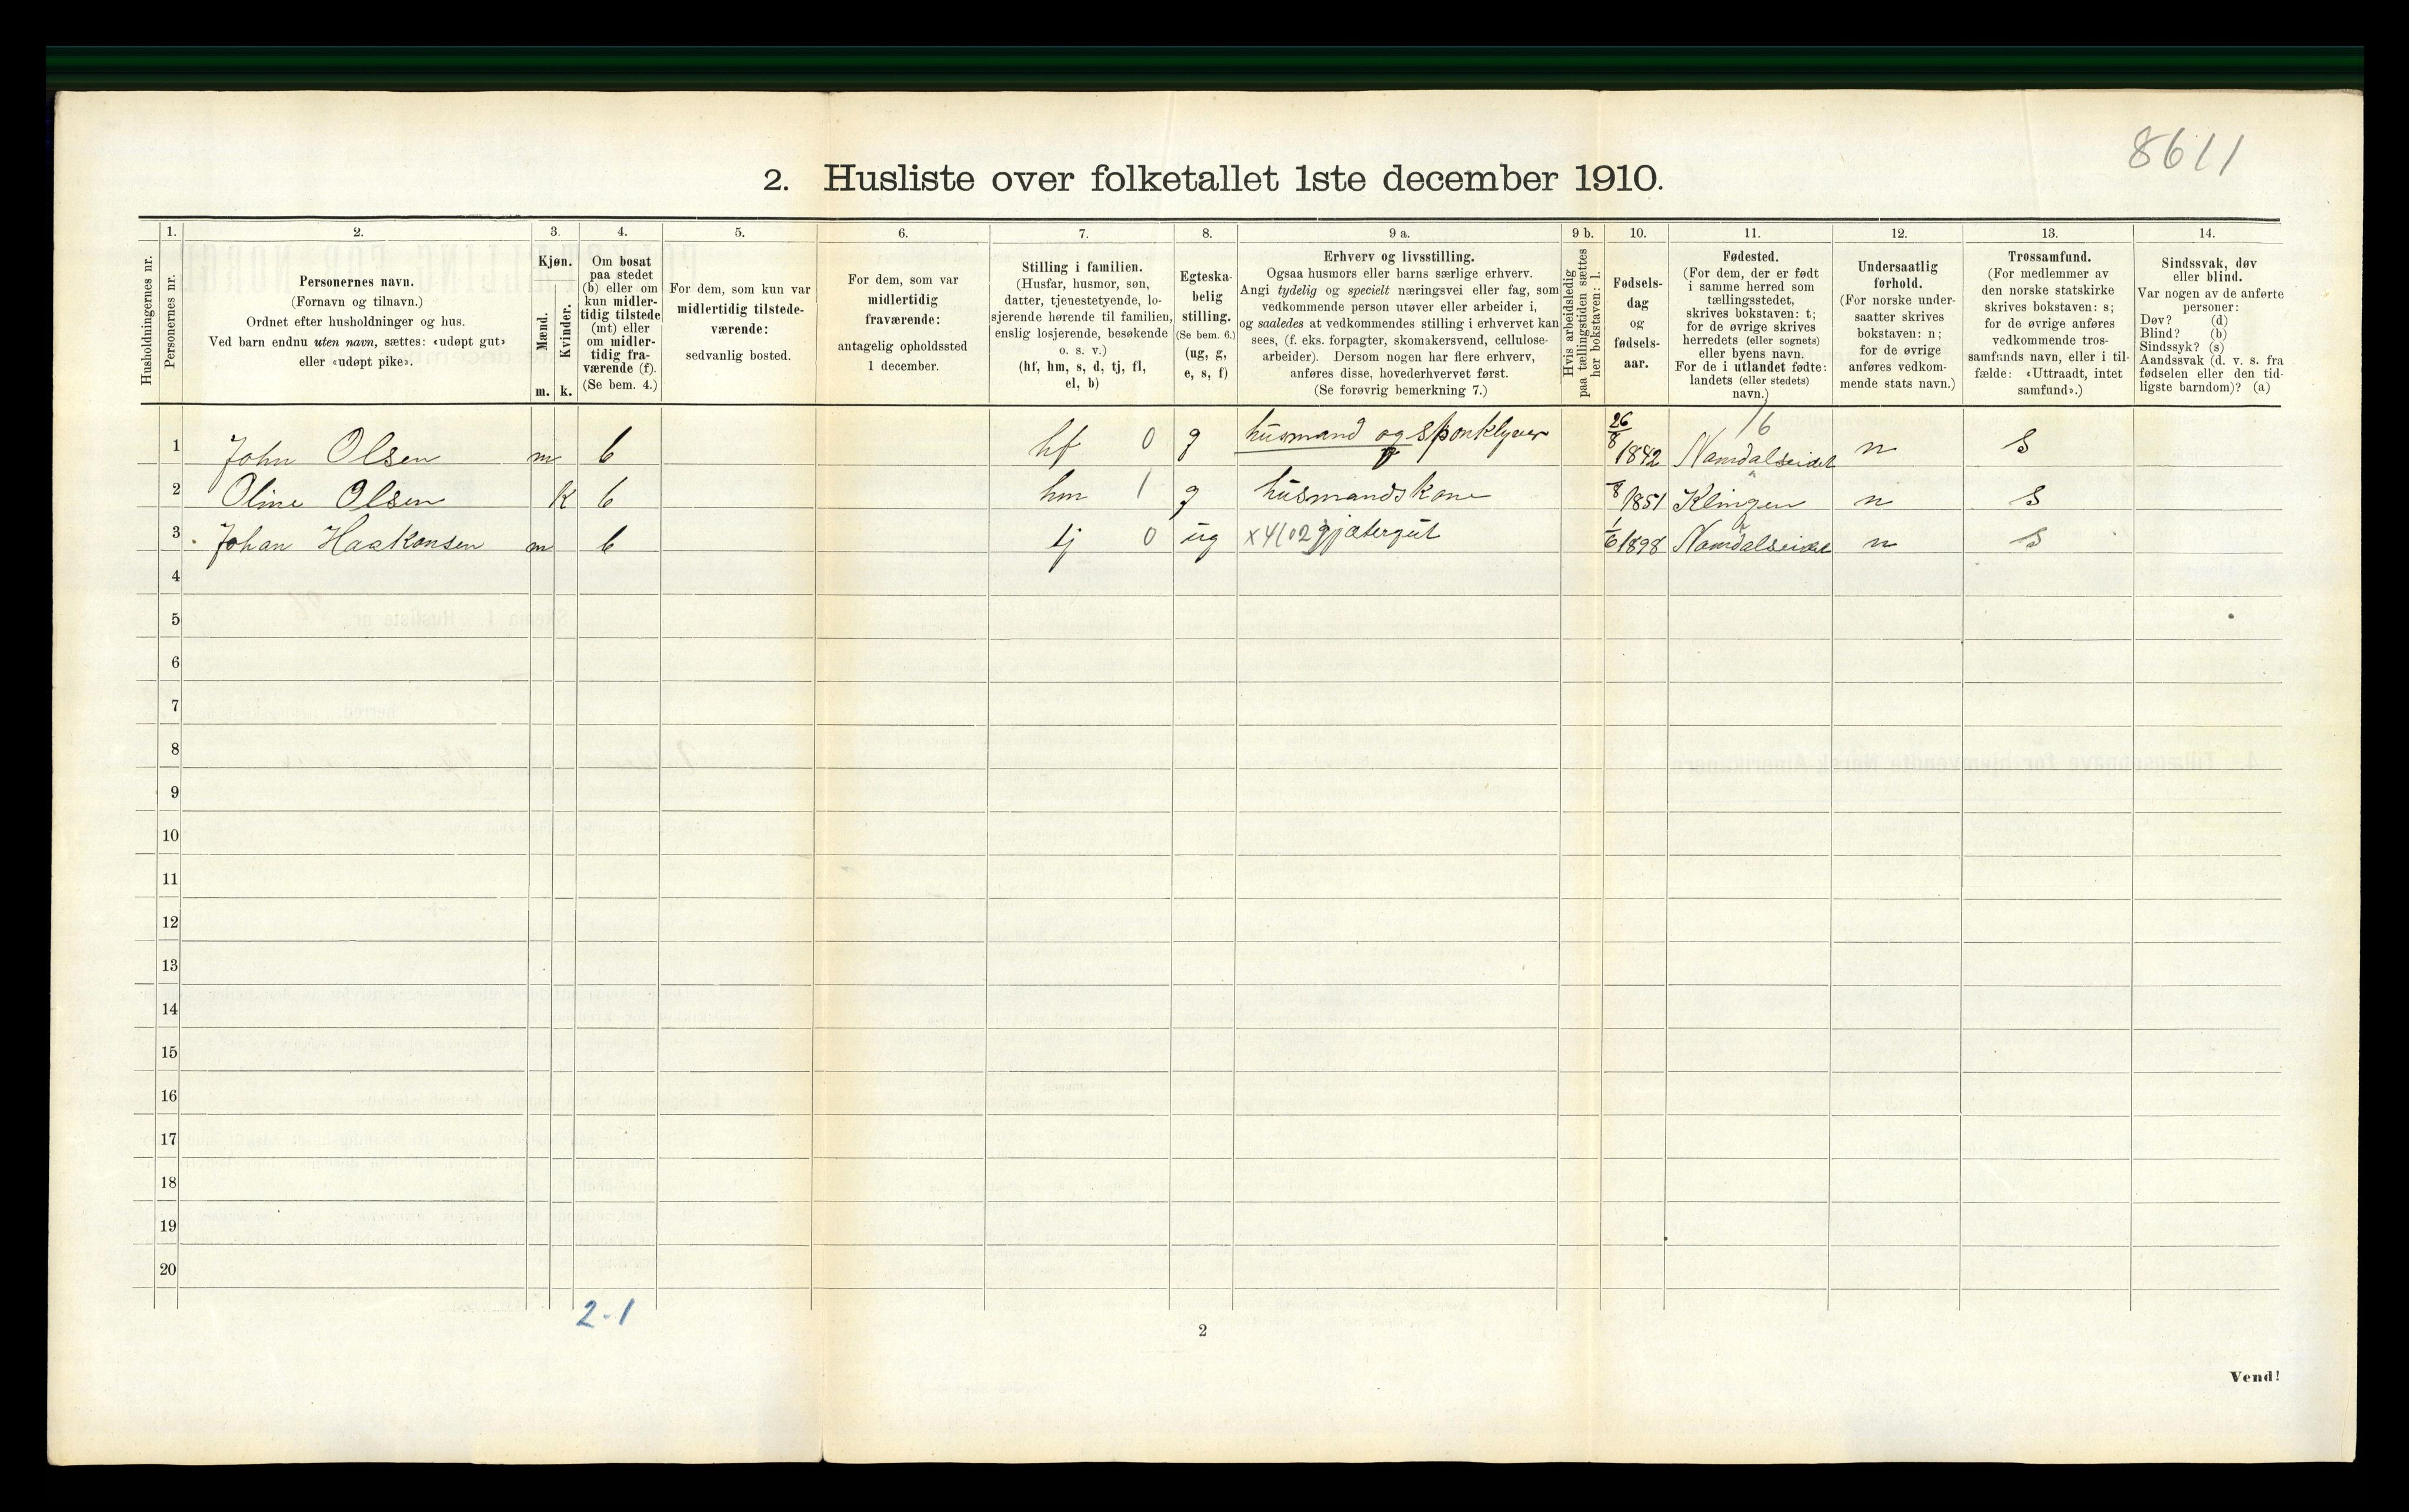 8611
2. Husliste over folketallet 1ste december 1910.
Husholdningernes nr.
1.
Personernes nr.
2.
Personernes navn.
(Fornavn og tilnavn.)
Ordnet efter husholdninger og hus.
Ved barn endnu uten navn, sættes: «udøpt gut»
eller «udøpt pike».
3.
Kjøn.
Mænd.
Kvinder.
m. k.
4.
Om bosat
paa stedet
(b) eller om
kun midler-
tidig tilstede
(mt) eller
om midler-
tidig fra-
værende (f).
(Se bem. 4.)
5.
For dem, som kun var
midlertidig tilstede-
værende:
sedvanlig bosted.
6.
For dem, som var
midlertidig
fraværende:
antagelig opholdssted
1 december.
7.
Stilling i familien.
(Husfar, husmor, søn,
datter, tjenestetyende, lo-
sjerende hørende til familien,
enslig losjerende, besøkende
o. s. v.)
(hf, hm, s, d, tj, fl,
el, b)
8.
Egteska-
belig
stilling.
(Se bem. 6.)
(ug, g,
e, s, f)
9 a.
Erhverv og livsstilling.
Ogsaa husmors eller barns særlige erhverv.
Angi tydelig og specielt næringsvei eller fag, som
vedkommende person utøver eller arbeider i,
og saaledes at vedkommendes stilling i erhvervet kan
sees, (f. eks. forpagter, skomakersvend, cellulose-
arbeider). Dersom nogen har flere erhverv,
anføres disse, hovederhvervet først.
(Se forøvrig bemerkning 7.)
9 b.
Hvis arbeidsledig
paa tællingstiden sættes
her bokstaven: l.
10.
Fødsels-
dag
og
fødsels-
aar.
11.
Fødested.
(For dem, der er født
i samme herred som
tællingsstedet,
skrives bokstaven: t;
for de øvrige skrives
herredets (eller sognets)
eller byens navn.
For de i utlandet fødte:
landets (eller stedets)
navn.)
12.
Undersaatlig
forhold.
(For norske under-
saatter skrives
bokstaven: n;
for de øvrige
anføres vedkom-
mende stats navn.)
13.
Trossamfund.
(For medlemmer av
den norske statskirke
skrives bokstaven: s;
for de øvrige anføres
vedkommende tros-
samfunds navn, eller i til-
fælde: «Uttraadt, intet
samfund».)
14.
Sindssvak, døv
eller blind.
Var nogen av de anførte
personer:
Døv? (d)
Blind? (b)
Sindssyk? (s)
Aandssvak (d. v. s. fra
fødselen eller den tid-
ligste barndom)? (a)
16
1 John Olsen m b hf 0 g husmand og sponkløver 26/8 1842 Namdalseidet n s
2 Oline Olsen k b hm 1 g husmandskone 1851 Klingen n s
3 Johan Haakonsen m b tj 0 ug x4102 gjætergut 1/6 1898 Namdalseidet n s
4
5
6
7
8
9
10
11
12
13
14
15
16
17
18
19
20
2-1
2
Vend!